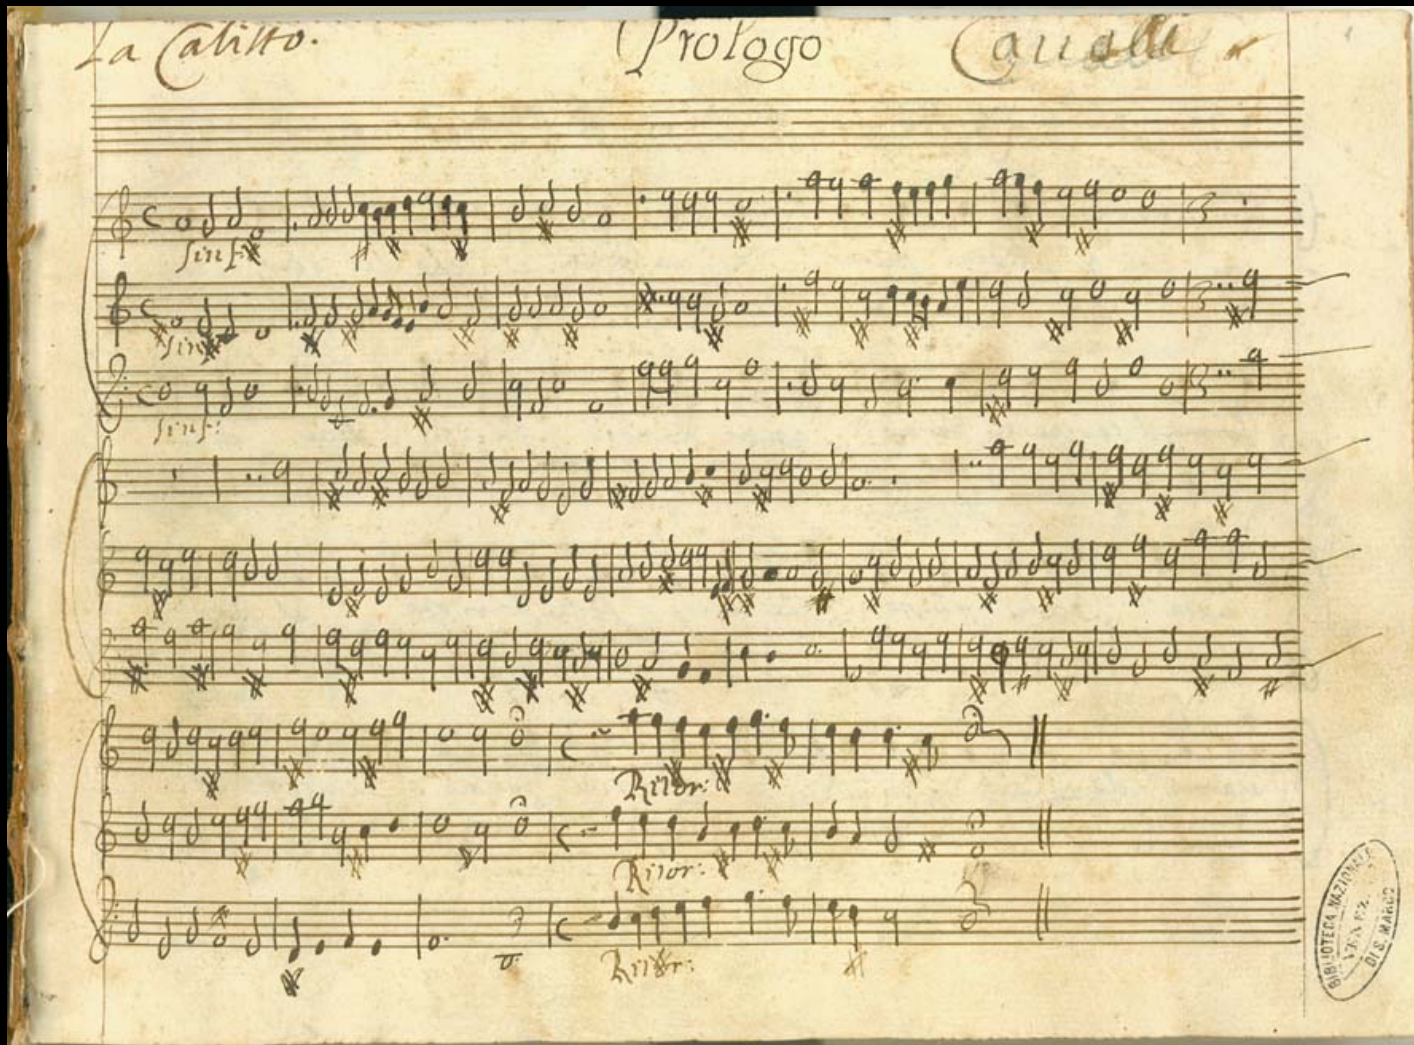 La Calisto. Prologo Cavalli
Sinf:
Sinf:
Sinf:
Ritor:
Ritor:
Ritor:
BIBLIOTECA NAZIONALE
DI S. MARCO